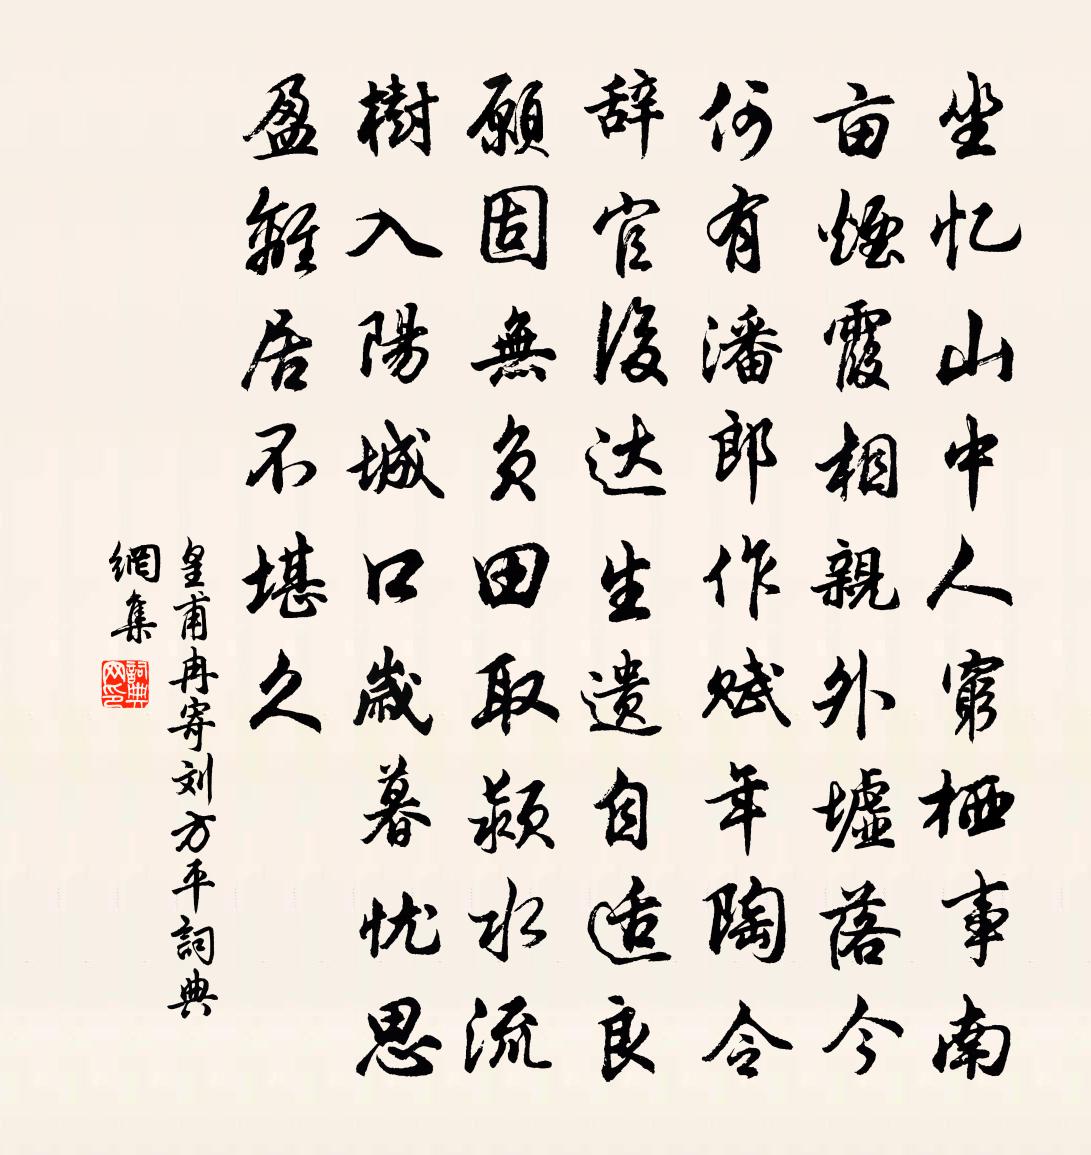 坐忆山中人窮栖事南
亩煙霞相親外墟落今
何有潘郎作赋年陶令
辞官後达生遗自适良
願固無负田取颍水流
樹入陽城口歲暮忧思
盈離居不堪久
皇甫冉寄刘方平詞典
網集
詞典网印